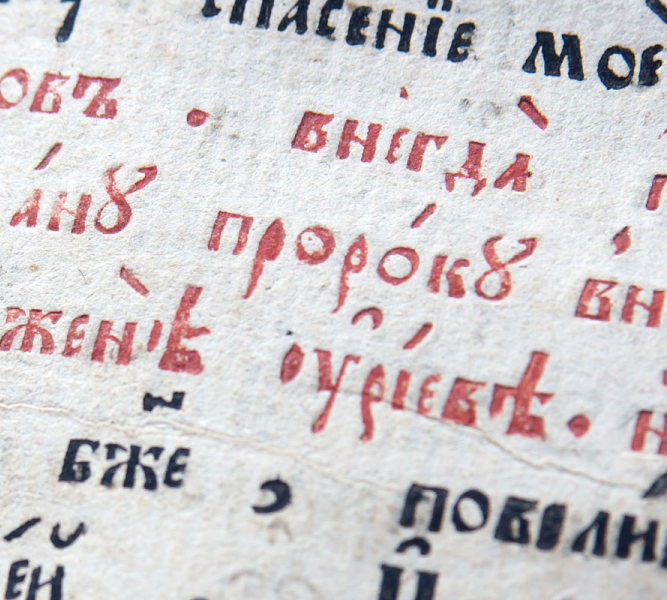 спасенїе мое
овъ . внегда̀
а́нꙋ проро́кꙋ вн
жен̀ѣ ᲂу҆рі́евѣ .
бж҃е , повели
ей